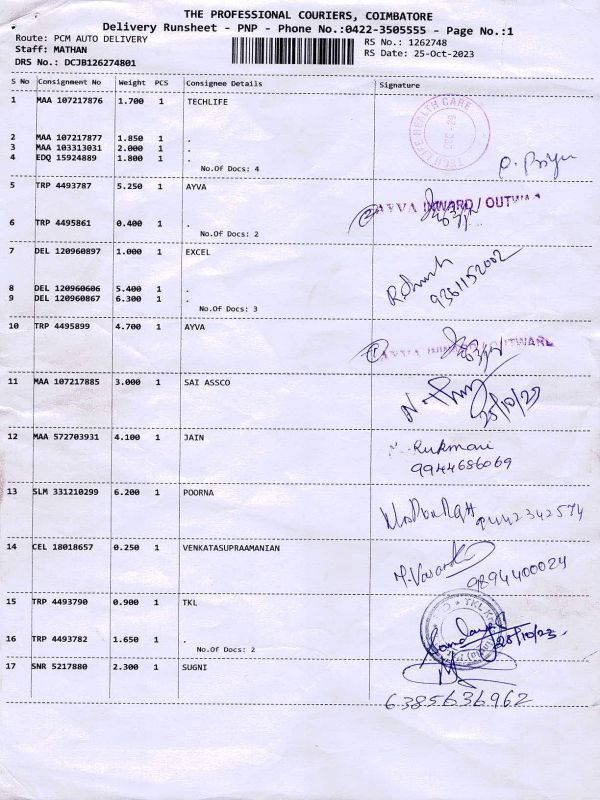 THE PROFESSIONAL COURIERS, COIMBATORE
Delivery Runsheet - PNP - Phone No.:0422-3505555 - Page No.:1
Route: PCM AUTO DELIVERY
Staff: MATHAN
DRS No.: DCJB126274801
RS No.: 1262748
RS Date: 25-Oct-2023
S No Consignment No Weight PCS Consignee Details Signature
1 MAA 107217876 1.700 1 TECHLIFE
TECH LIFE HEALTH CARE
2 MAA 107217877 1.850 1 .
3 MAA 103313031 2.000 1 .
4 EDQ 15924889 1.800 1 .
No.Of Docs: 4
5 TRP 4493787 5.250 1 AYVA
② AYVA INWARD / OUTWA
6 TRP 4495861 0.400 1 .
No.Of Docs: 2
7 DEL 120960897 1.000 1 EXCEL
9361152002
8 DEL 120960606 5.400 1 .
9 DEL 120960867 6.300 1 .
No.Of Docs: 3
10 TRP 4495899 4.700 1 AYVA
① AYVA INWARD / OUTWARD
11 MAA 107217885 3.000 1 SAI ASSCO
25/10/23
12 MAA 572703931 4.100 1 JAIN
Rukmani
9944686069
13 SLM 331210299 6.200 1 POORNA
14 CEL 18018657 0.250 1 VENKATASUPRAAMANIAN
9894400024
15 TRP 4493790 0.900 1 TKL
TKL
25/10/23
16 TRP 4493782 1.650 1 .
No.Of Docs: 2
17 SNR 5217880 2.300 1 SUGNI
6385636962